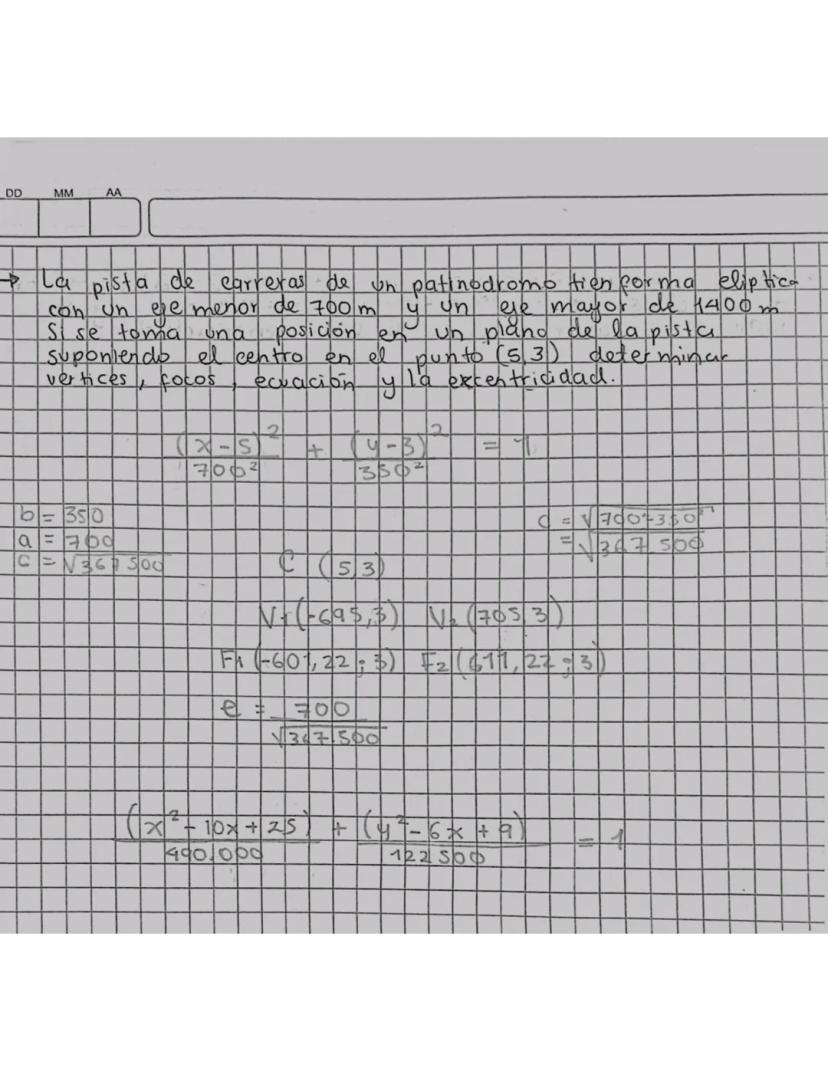 DD MM AA
→ La pista de carreras de un patinodromo tien forma eliptica
con un eje menor de 700m y un eje mayor de 1400m
Si se toma una posición en un plano de la pista
suponiendo el centro en el punto (5,3) determinar
vertices, focos, ecuación y la excentricidad.
(x-5)²/700² + (y-3)²/350² = 1
b = 350
a = 700
c = √367500
c = √700²-350²
= √367.500
C (5,3)
V1(-695,3) V2(705,3)
F1(-601,22;3) F2(611,22;3)
e = 700/√367.500
(x²-10x+25)/490.000 + (y²-6x+9)/122500 = 1